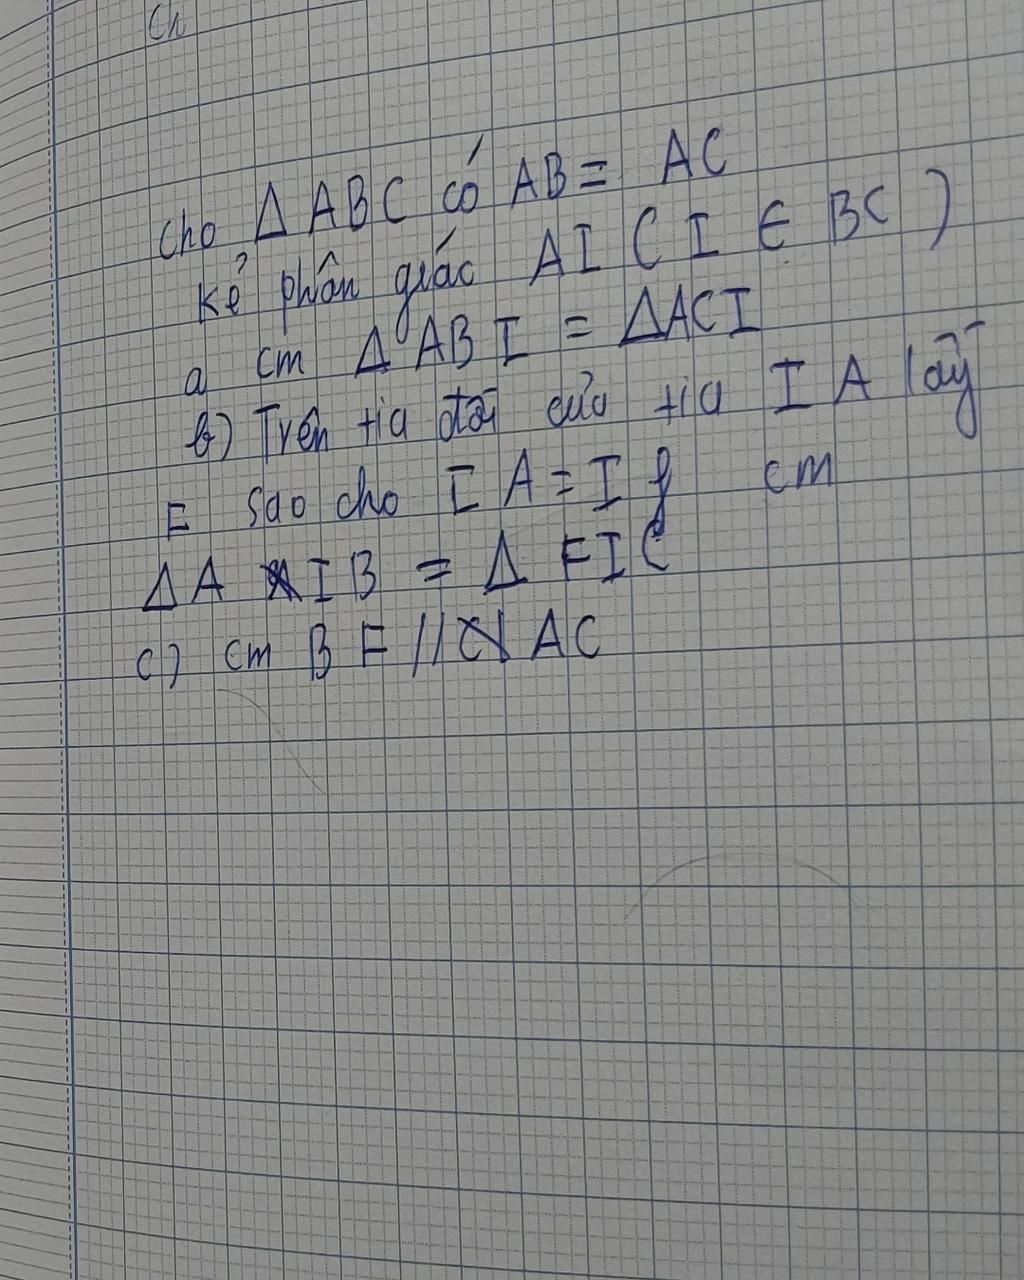 Ch
Cho Δ ABC có AB = AC
Kẻ phân giác AI ( I ∈ BC )
a cm Δ ABI = ΔACI
b) Trên tia đối của tia IA lấy
F sao cho IA = IF cm
ΔA IB = Δ FIC
c) cm BF // AC